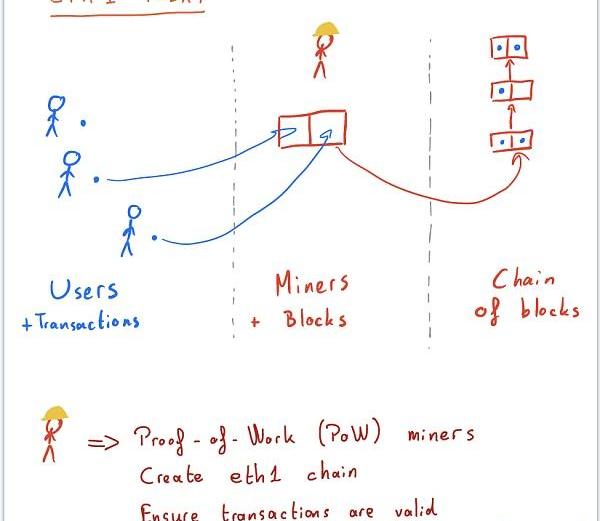 Users
+Transactions
Miners
+ Blocks
Chain
of blocks
=> Proof-of-Work (PoW) miners
Create eth1 chain
Ensure transactions are valid